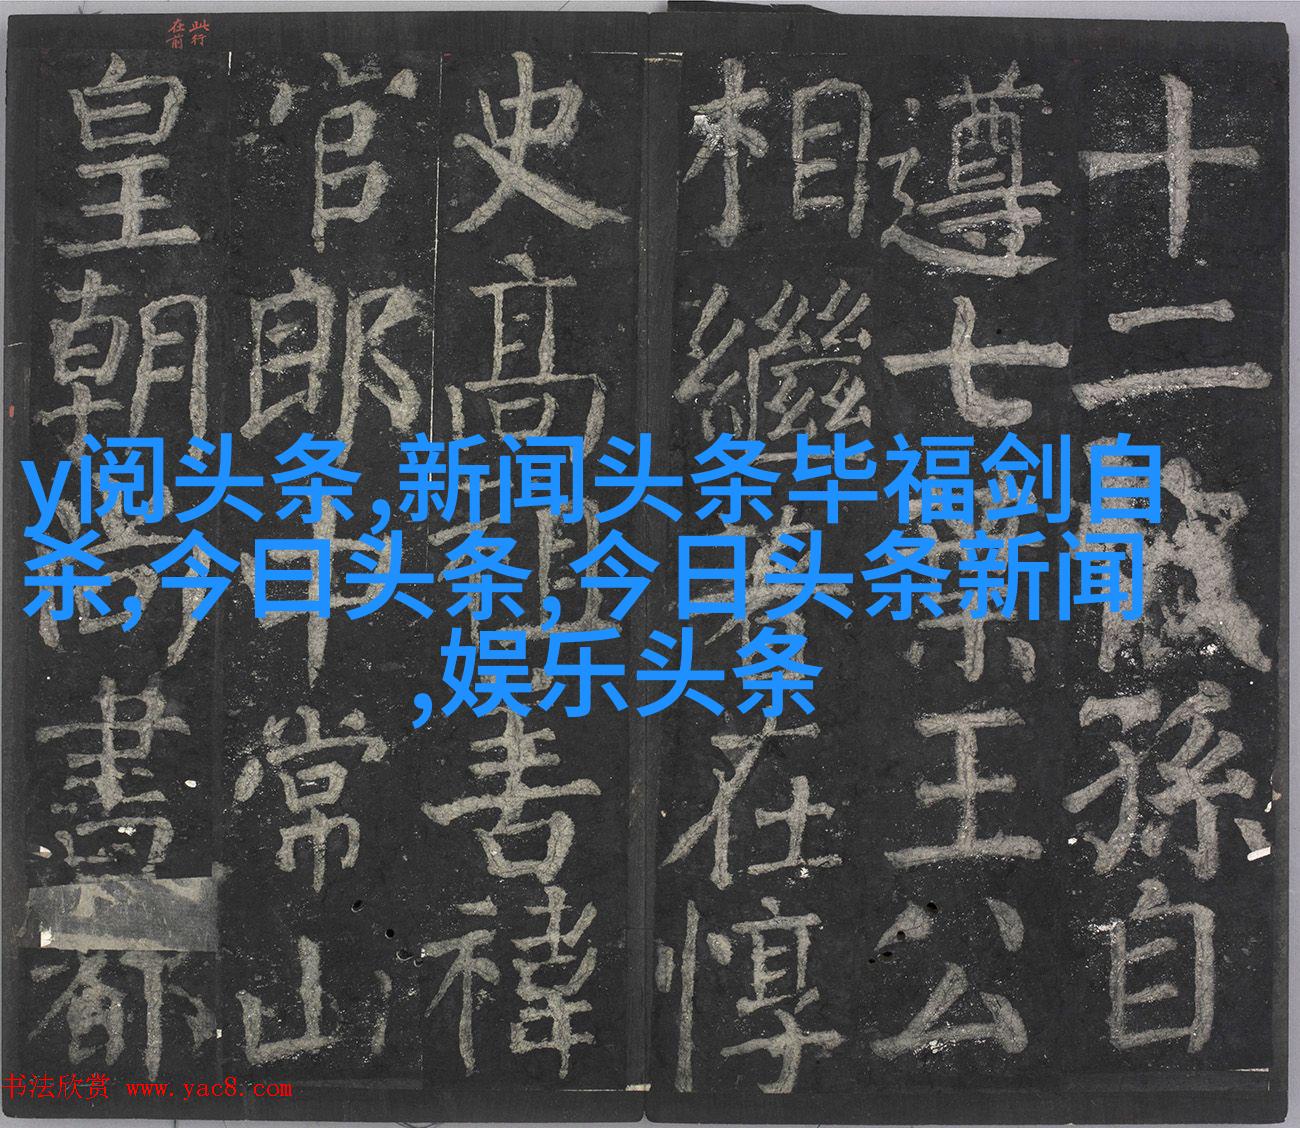 此行
在前
十二歲孫自
遵七葉王公
相繼
在惇
史高祖
書禕
官郎中
常山
皇朝尚
書都
y阅头条,新闻头条毕福剑自
杀,今曰头条,今日头条新闻
,娱乐头条
书法欣赏 www.yac8.com